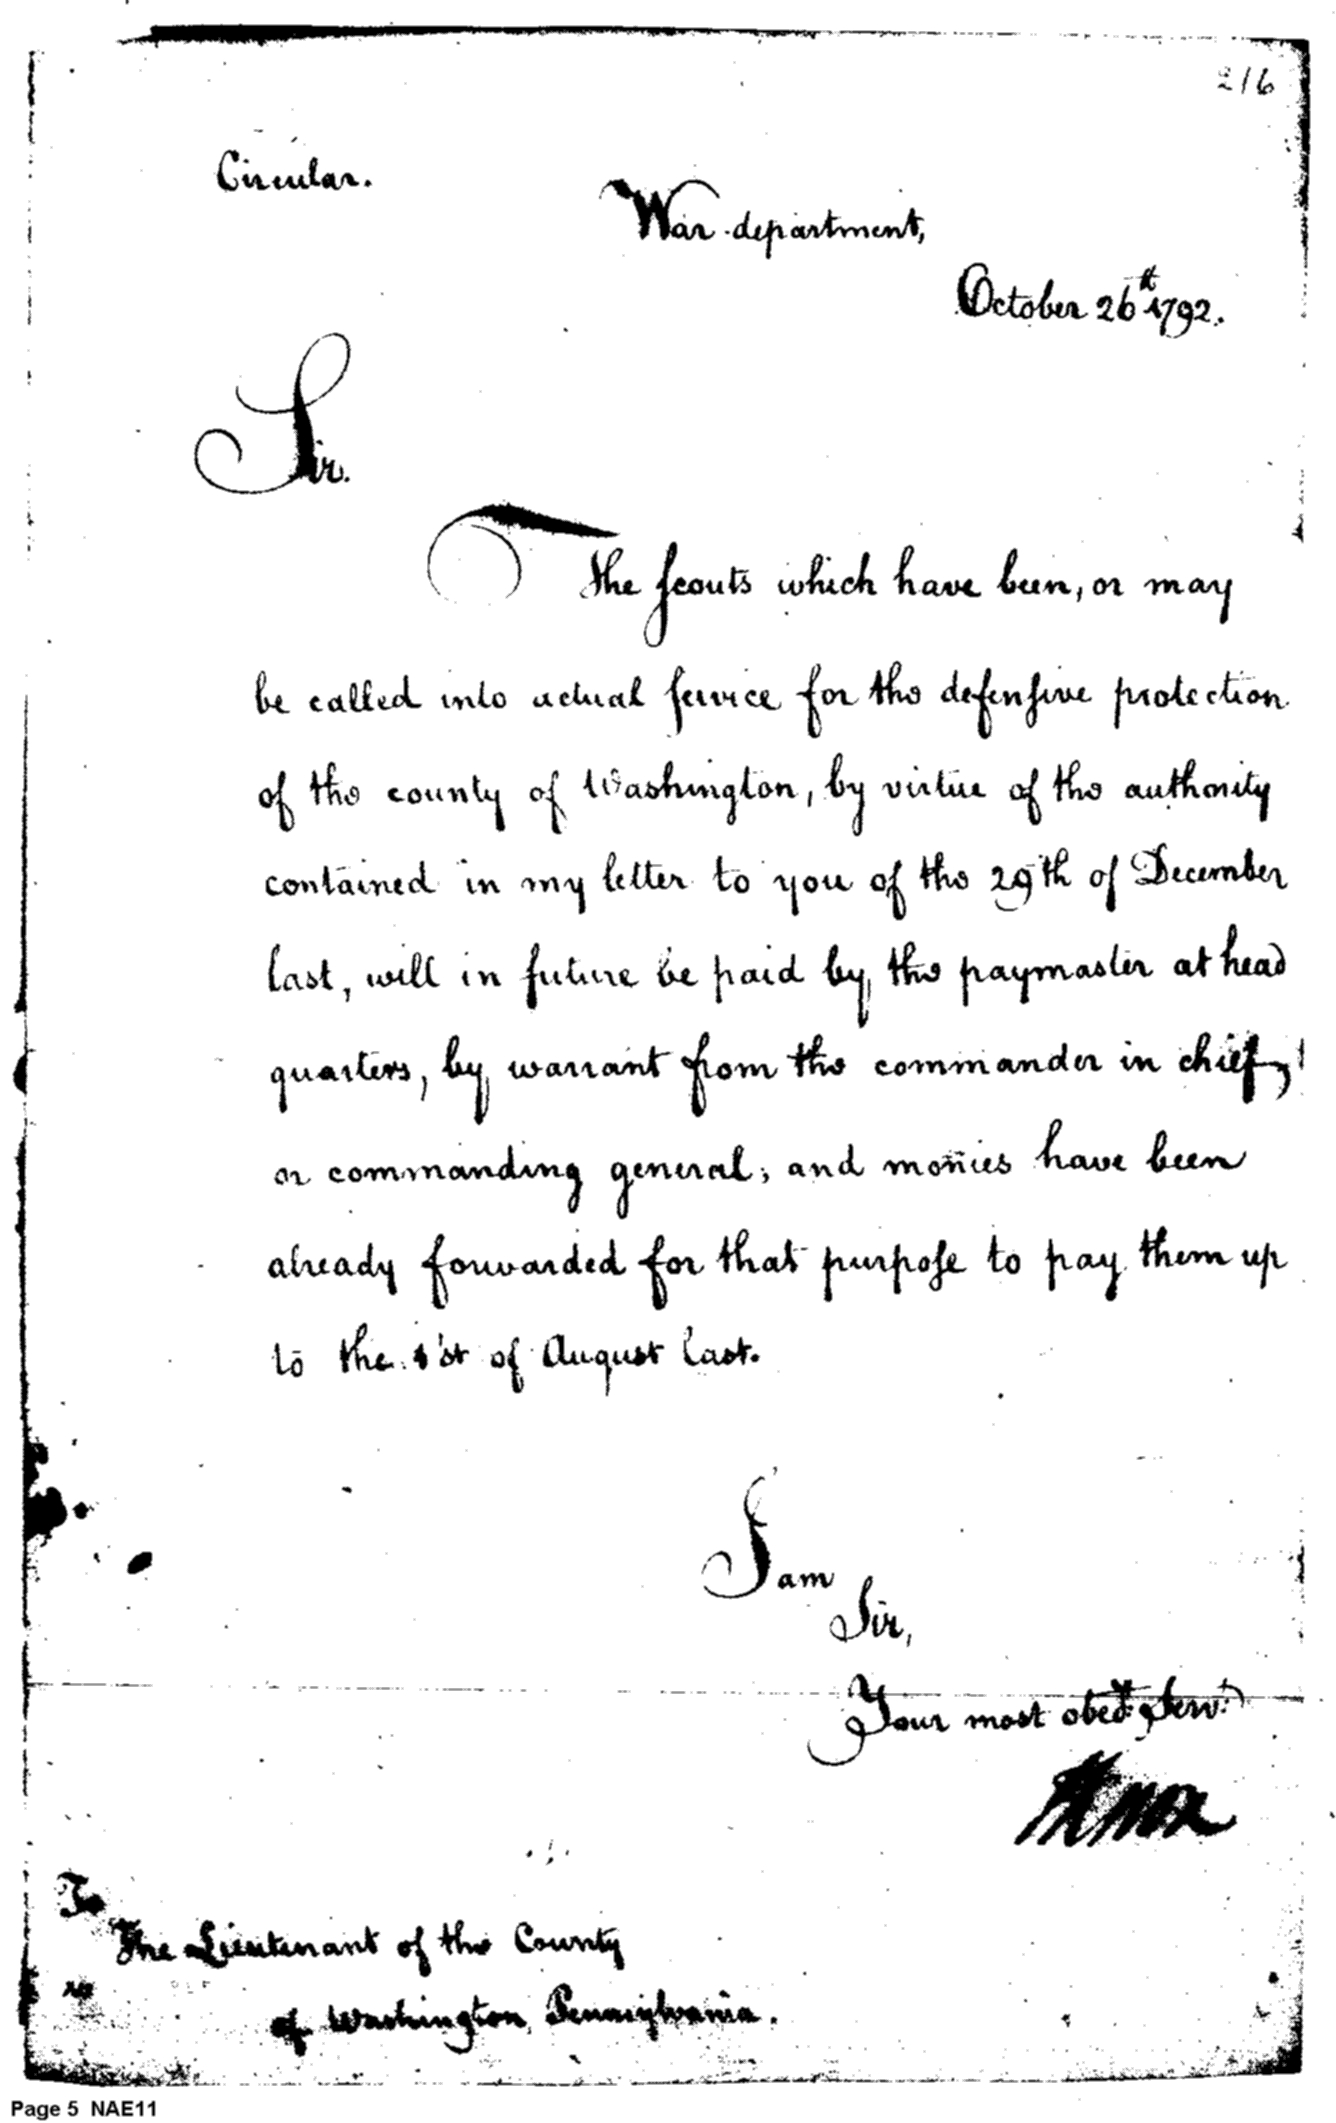 216
Circular.
War department,
October 26th 1792.
Sir.
The scouts which have been, or may
be called into actual service for the defensive protection
of the county of Washington, by virtue of the authority
contained in my letter to you of the 29th of December
last, will in future be paid by, the paymaster at head
quarters, by, warrant from the commander in chief,
or commanding general; and monies have been
already forwarded for that purpose to pay them up
to the 1st of August last.
I am
Sir,
Your most obedt. Servt.
HKnox
To
The Lieutenant of the County
of Washington, Pennsylvania.
Page 5 NAE11